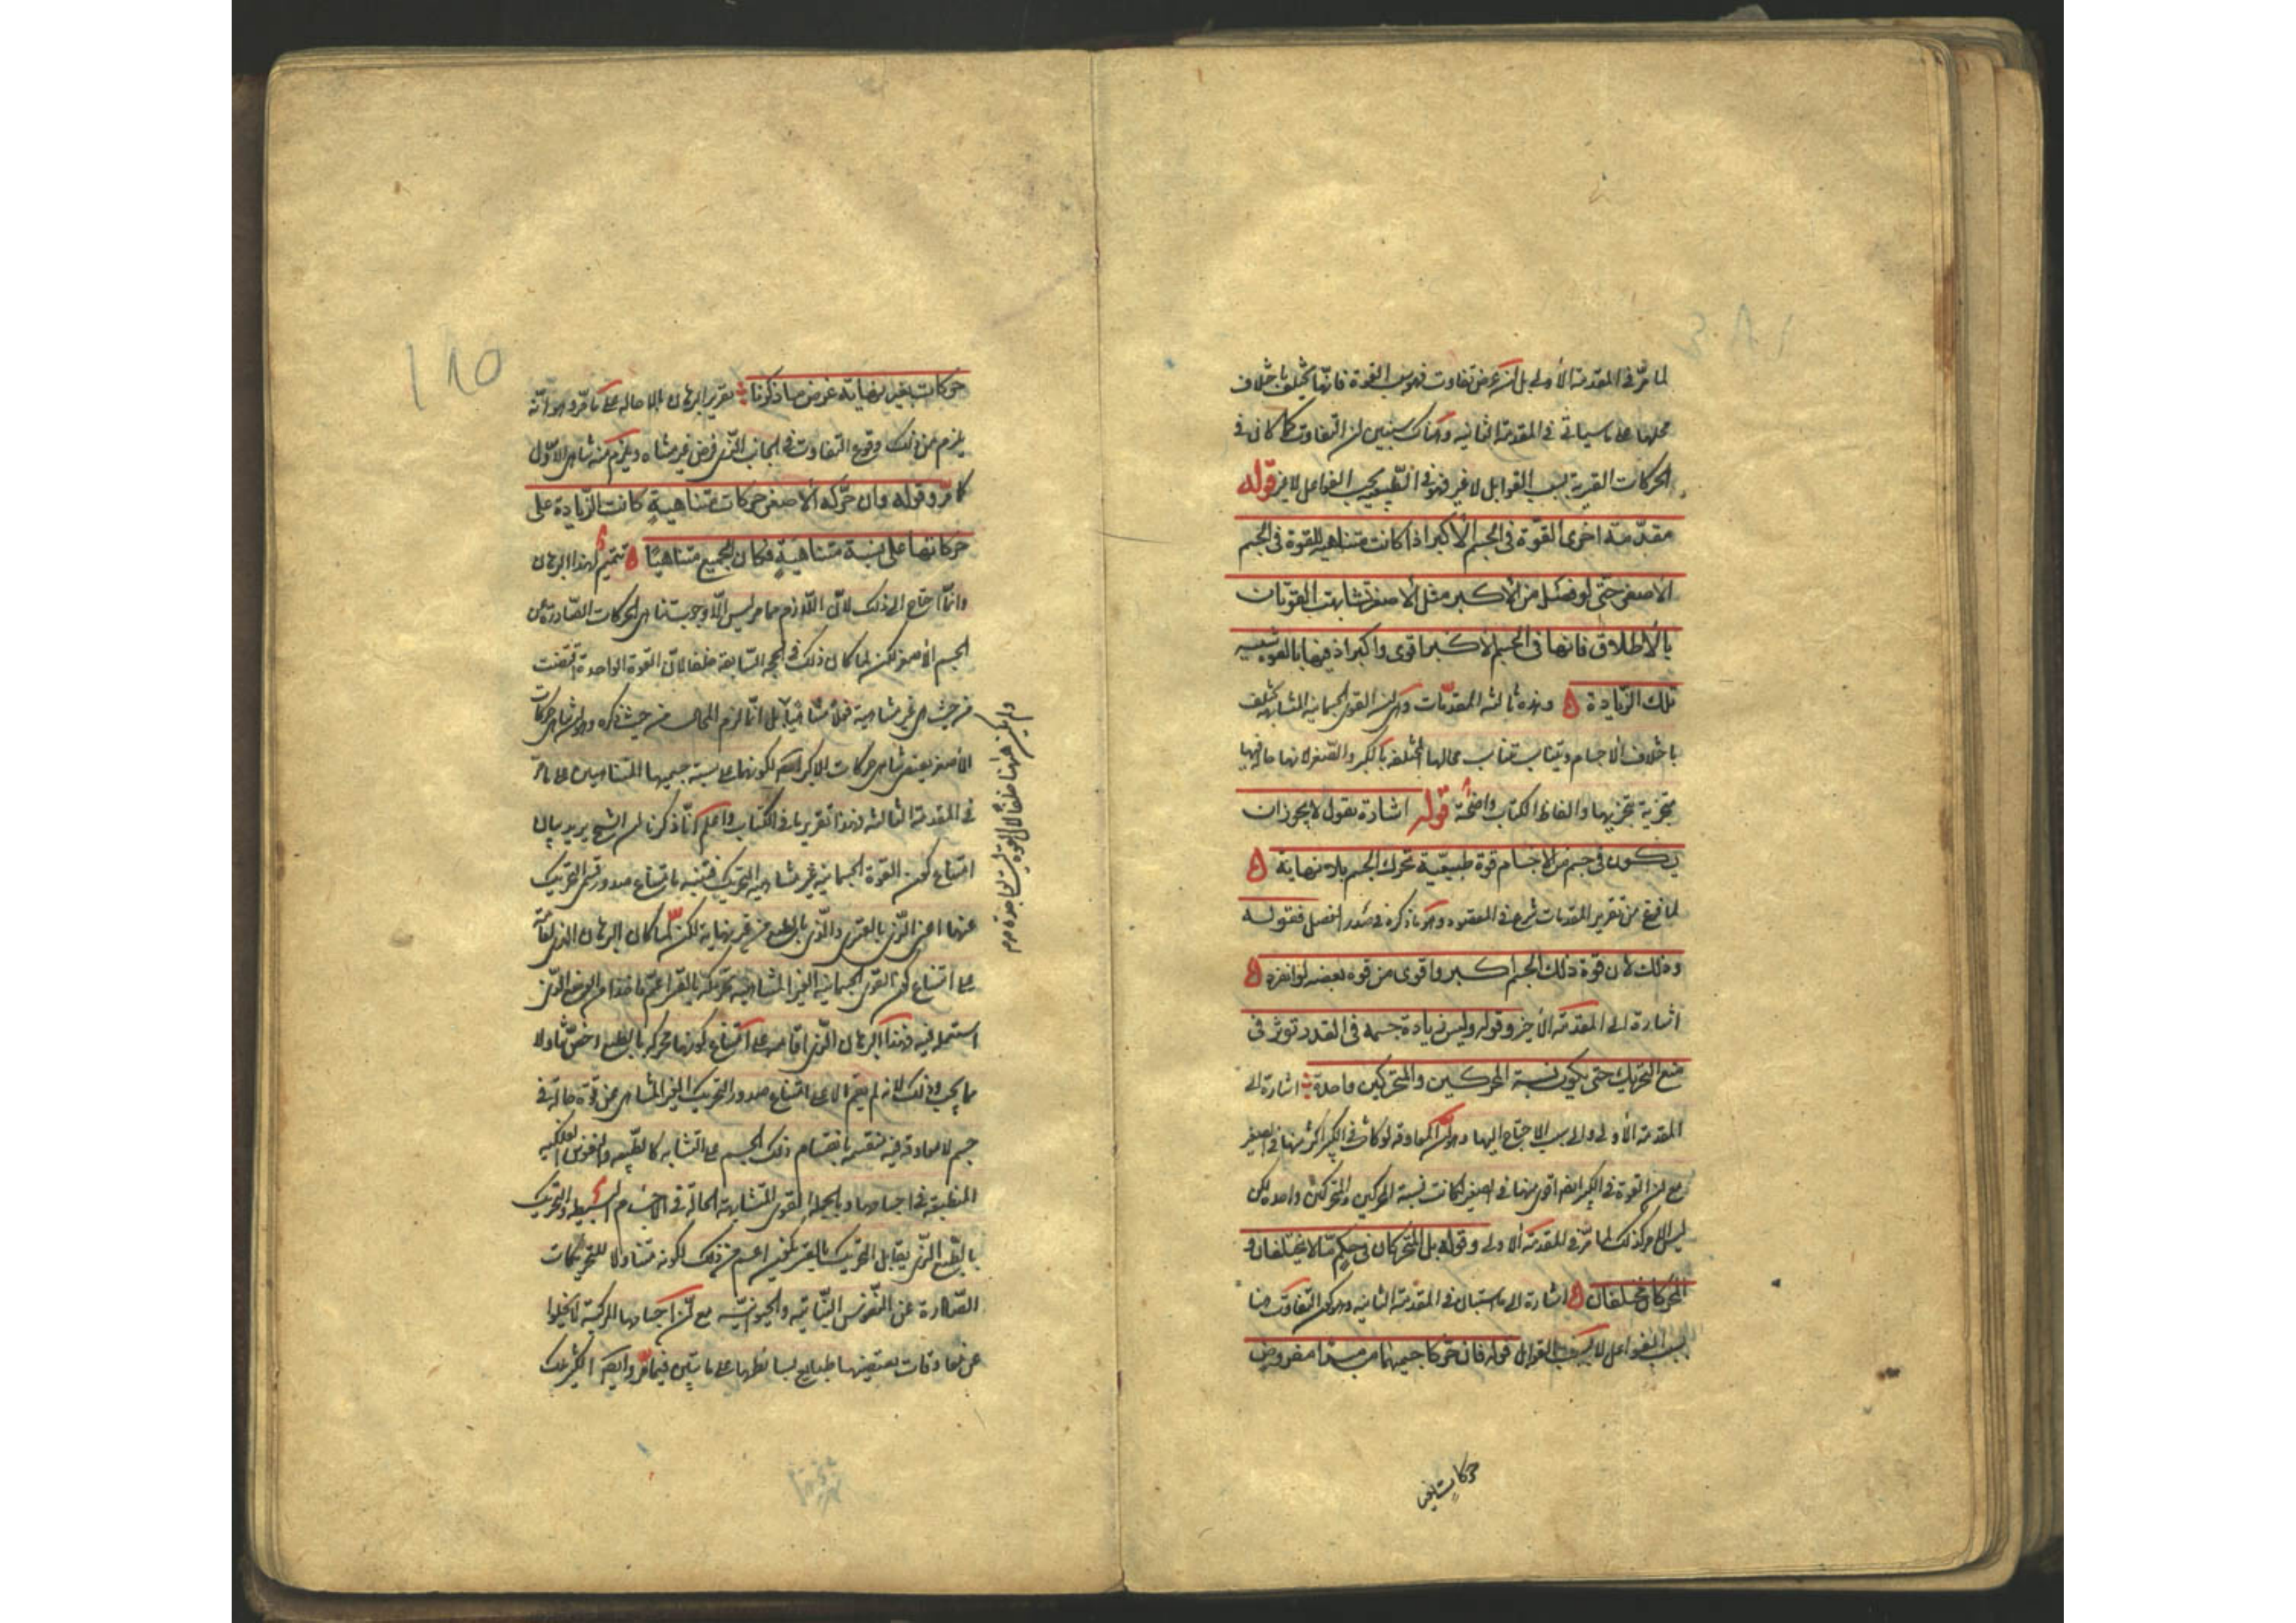 لما مرّ فى المقدمة الأولى بل ان عرض تفاوت فهو بسبب القوة فانها تختلف باختلاف
محلها على ما سياتى فى المقدمة الثانية وهناك سنبين ان التفاوت كما كان فى
الحركات القسرية بسبب القوابل لا غير فهو فى الطبيعية بحسب الفواعل لا غير قوله
مقدّمة اخرى القوّة فى الجسم الأكبر اذا كانت متشابهة للقوة فى الجسم
الأصغر حتى لو فصل من الأكبر مثل الأصغر تشابهت القوتان
بالأطلاق فانها فى الجسم الأكبر اقوى واكبر اذ فيها بالقوة شبيه
تلك الزّيادة ه وهذه ثالثة المقدّمات وهى ان القوى الجسمانية المتشابهة تختلف
باختلاف الاجسام وتتناسب بتناسب محالها المختلفة بالكبر والصغر لانها حالة فيها
متجزية بتجزيها والفاظ الكتاب واضحة قوله اشارة نقول لا يجوز ان
يكون فى جسم من الاجسام قوة طبيعية تحرك الجسم بلا نهاية ه
لما فرغ من تقرير المقدمات شرع فى المقصود وهو ما ذكره فى صدر الفصل فقوله
وذلك لان قوة ذلك الجسم اكبر واقوى من قوة بعضه لو انفرد ه
اشارة الى المقدمة الأخيرة وقوله وليس زيادة جسمه فى القدر توثر فى
منع التحريك حتى يكون نسبة المحركين والمتحركين واحدة اشارة الى
المقدمة الأولى والى سبب الاحتياج اليها وهو ان المعاوقة لو كانت فى الكبير اكثر منها فى الصغير
مع ان القوة فى الكبير ايضا اقوى منها فى الصغير لكانت نسبة المحركين والمتحركين واحدة لكن
ليس الامر كذلك لما مرّ فى المقدمة الاولى وقوله بل المتحركان فى حكم ما لا يختلفان و
المحركان مختلفان ه اشارة الى ما استبان فى المقدمة الثانية وهو كون التفاوت هنا
بسبب الفواعل لا بسبب القوابل قوله فان حركا جسميهما من مبدا مفروض
حركات بغير
١٨٥
حركات بغير نهاية عرض ما ذكرنا تقرير البرهان بالاحالة على ما مرّ وهو انه
يلزم من ذلك وقوع التفاوت فى الجانب الذى فرض غير متناه ويلزم منه تناهى الاول
كما مرّ وقوله وان حرّكه الأصغر حركات متناهية كانت الزّيادة على
حركاتها على نسبة متناهية فكان الجميع متناهيًا ه تتميم لهذا البرهان
وانما احتاج الى ذلك لان اللازم مما مر ليس الا وجوب تناهى الحركات الصّادرة عن
الجسم الأصغر لكن لما كان ذلك فى الحجة السّابقة خلفا لان القوة الواحدة اقتضت
من حيث هى غير متناهية فعلا متناهيا بل انما لزم المحال من حيث ذكره وهو ان تناهى حركات
الأصغر يقتضى تناهى حركات الاكبر ايضا لكونها على نسبة جسميهما المتناهيين على ما مرّ
فى المقدمة الثالثة وهذا تقرير ما فى الكتاب واعلم انا ذكرنا ان الشيخ يريد بيان
امتناع كون القوة الجسمانية غير متناهية التحريك فتنبه بامتناع صدور قسمى التحريك
عنها اعنى الذى بالقسر والذى بالطبع من غير نهاية لكن لما كان البرهان الذى اقامه
على امتناع كون القوى الجسمانية الغير المتناهية محركة بالقسر اعم ماخذا من الموضع الذى
استعمله فيه وهذا البرهان الذى اقامه على امتناع كونها محركة بالطبع اخص تناولا
مما يجب وذلك لانه لم يقم الا على امتناع صدور التحريك الغير المتناهى عن قوة حالة فى
جسم لا معاوقة فيه منقسمة بانقسام ذلك الجسم على التشابه كالطبيعة والنفوس الفلكية
المنطبعة فى اجسامها وبالجملة القوى المتشابهة الحالة فى الاجسام البسيطة والتحريك
بالطبع الذى يقابل التحريك بالقسر يكون اعم من ذلك لكونه متناولا للتحريكات
الصّادرة عن النفوس النباتية والحيوانية مع ان اجسامها المركبة لا يخلوا
عن معاوقات يقتضيها طبايع بسائطها على ما تبين فيما مرّ وايضا اكثر تلك
ولم يكن ههنا خلفا لان القوة ليست واحدة